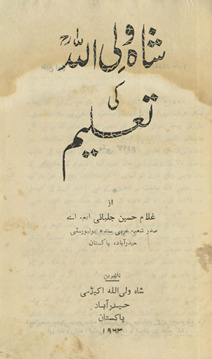 شاہ ولی اللہؒ
کی
تعلیم
از
غلام حسین جلبانی ایم۔ اے
صدر شعبہ عربی سندھ یونیورسٹی
حیدرآباد، پاکستان
ناشرین
شاہ ولی اللہ اکیڈمی
حیدرآباد
پاکستان
۱۹۶۳